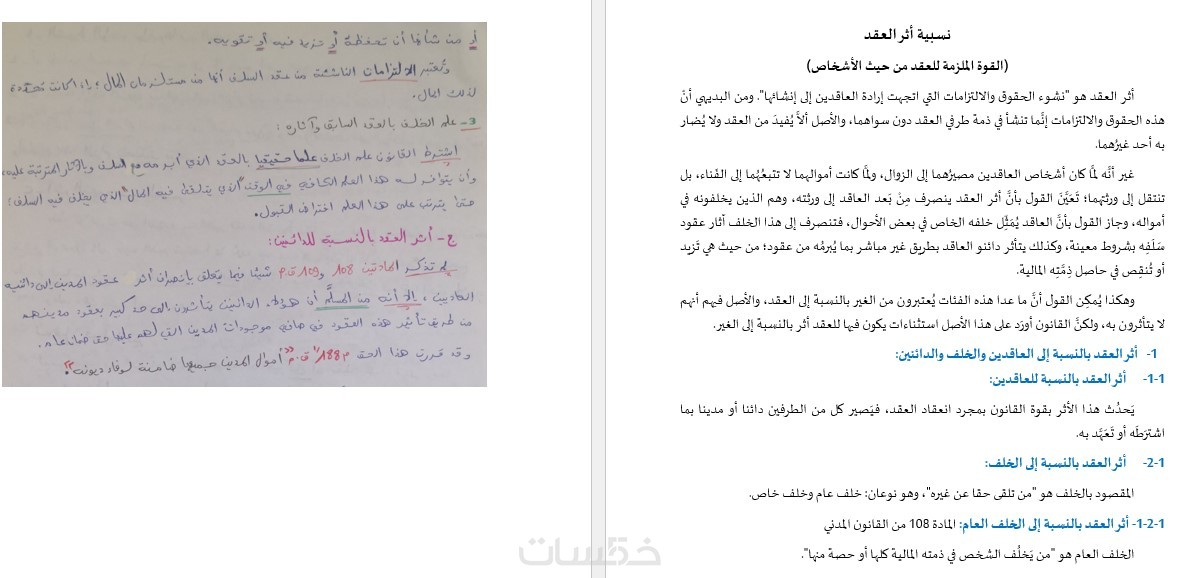 نسبية أثر العقد
(القوة الملزمة للعقد من حيث الأشخاص)
أثر العقد هو "نشوء الحقوق والالتزامات التي اتجهت إرادة العاقدين إلى إنشائها". ومن البديهي أنّ
هذه الحقوق والالتزامات إنَّما تنشأ في ذمة طرفي العقد دون سواهما، والأصل ألاَّ يُفيدَ من العقد ولا يُضار
به أحد غيرُهما.
غير أنَّه لمَّا كان أشخاص العاقدين مصيرُهما إلى الزوال، ولمَّا كانت أموالهما لا تتبعهُما إلى الفَناء، بل
تنتقل إلى ورثتهما؛ تَعَيَّنَ القول بأنَّ أثر العقد ينصرف مِنْ بَعد العاقد إلى ورثته، وهم الذين يخلفونه في
أمواله، وجاز القول بأنَّ العاقد يُمَثِّل خلفه الخاص في بعض الأحوال، فتنصرف إلى هذا الخلف آثار عقود
سَلَفِه بشروط معينة، وكذلك يتأثر دائنو العاقد بطريق غير مباشر بما يُبرمُه من عقود؛ من حيث هي تَزيد
أو تُنقِص في حاصل ذِمَّتِه المالية.
وهكذا يُمكِن القول أنَّ ما عدا هذه الفئات يُعتبرون من الغير بالنسبة إلى العقد، والأصل فيهم أنهم
لا يتأثرون به، ولكنَّ القانون أورَد على هذا الأصل استثناءات يكون فيها للعقد أثر بالنسبة إلى الغير.
1- أثر العقد بالنسبة إلى العاقدين والخلف والدائنين:
1-1- أثر العقد بالنسبة للعاقدين:
يَحدُث هذا الأثر بقوة القانون بمجرد انعقاد العقد، فيَصير كل من الطرفين دائنا أو مدينا بما
اشترَطَه أو تَعَهَّد به.
1-2- أثر العقد بالنسبة إلى الخلف:
المقصود بالخلف هو "من تلقى حقا عن غيره"، وهو نوعان: خلف عام وخلف خاص.
1-2-1- أثر العقد بالنسبة إلى الخلف العام: المادة 108 من القانون المدني
الخلف العام هو "من يَخلُف الشخص في ذمته المالية كلها أو حصة منها".
أو من شأنها أن تحفظه أو تزيد فيه أو تقويه.
وتُعتبر الالتزامات الناشئة من عقد السلف أنها من مستلزمات المال، إذا كانت مُحدّدة
لذلك المال.
3- علم الخلف بالعقد السابق وآثاره:
اشترط القانون علم الخلف علما حقيقيا بالعقد الذي أبرمه مع السلف وبالآثار المترتبة عليه،
وأن يتوافر له هذا العلم الكافي في الوقت الذي يتلقى فيه المال الذي يخلف فيه السلف؛
حتى يترتب على هذا العلم افتراض القبول.
ج- أثر العقد بالنسبة للدائنين:
لم تذكر المادتين 108 و109 ق م شيئا فيما يتعلق بإنصراف أثر عقود المدين إلى دائنيه
العاديين، إلا أنه من المسلَّم أن هؤلاء الدائنين يتأثرون إلى حد كبير بعقود مدينهم
من طريق تأثير هذه العقود في صافي موجودات المدين التي لهم عليها حق ضمان عام.
وقد قررت هذا الحق م 188/1 ق.م "أموال المدين جميعها ضامنة لوفاء ديونه".
خمسات